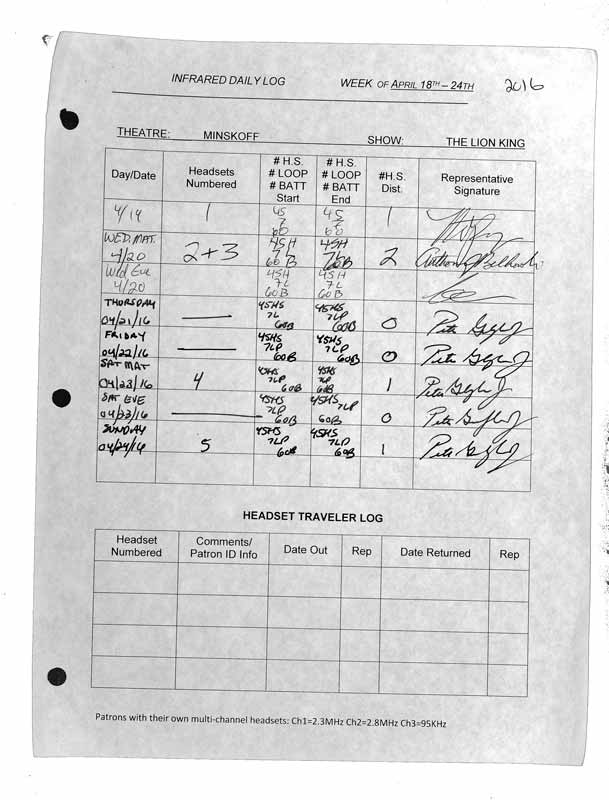 INFRARED DAILY LOG WEEK OF APRIL 18TH – 24TH 2016
THEATRE: MINSKOFF SHOW: THE LION KING
Day/Date Headsets Numbered # H.S. # LOOP # BATT Start # H.S. # LOOP # BATT End #H.S. Dist. Representative Signature
4/19 1 45 7 60 45 7 60 1
WED. MAT. 4/20 2+3 45H 7L 60B 45H 7L 60B 2 Anthony
Wed Eve 4/20 45H 7L 60B 45H 7L 60B
THURSDAY 04/21/16 — 45HS 7L 60B 45HS 7LP 60B 0 Pete
FRIDAY 04/22/16 — 45HS 7LP 60B 45HS 7LP 60B 0 Pete
SAT MAT 04/23/16 4 45HS 7LP 60B 45HS 7LP 60B 1 Pete
SAT EVE 04/23/16 — 45HS 7LP 60B 45HS 7LP 60B 0 Pete
SUNDAY 04/24/16 5 45HS 7LP 60B 45HS 7LP 60B 1 Pete
HEADSET TRAVELER LOG
Headset Numbered Comments/ Patron ID Info Date Out Rep Date Returned Rep
Patrons with their own multi-channel headsets: Ch1=2.3MHz Ch2=2.8MHz Ch3=95KHz